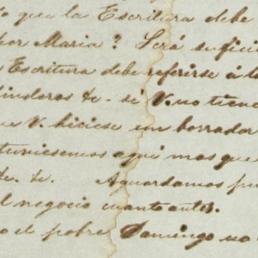 que la Escritura debe
por Maria? Será sufici
Escritura debe referirse á l
linderos &c. si V. no tiene
V. hiciese un borrador
tuviesemos aquí mas que
&c. &c. Aguardamos pu
l negocio cuanto antes.
el pobre Domingo no